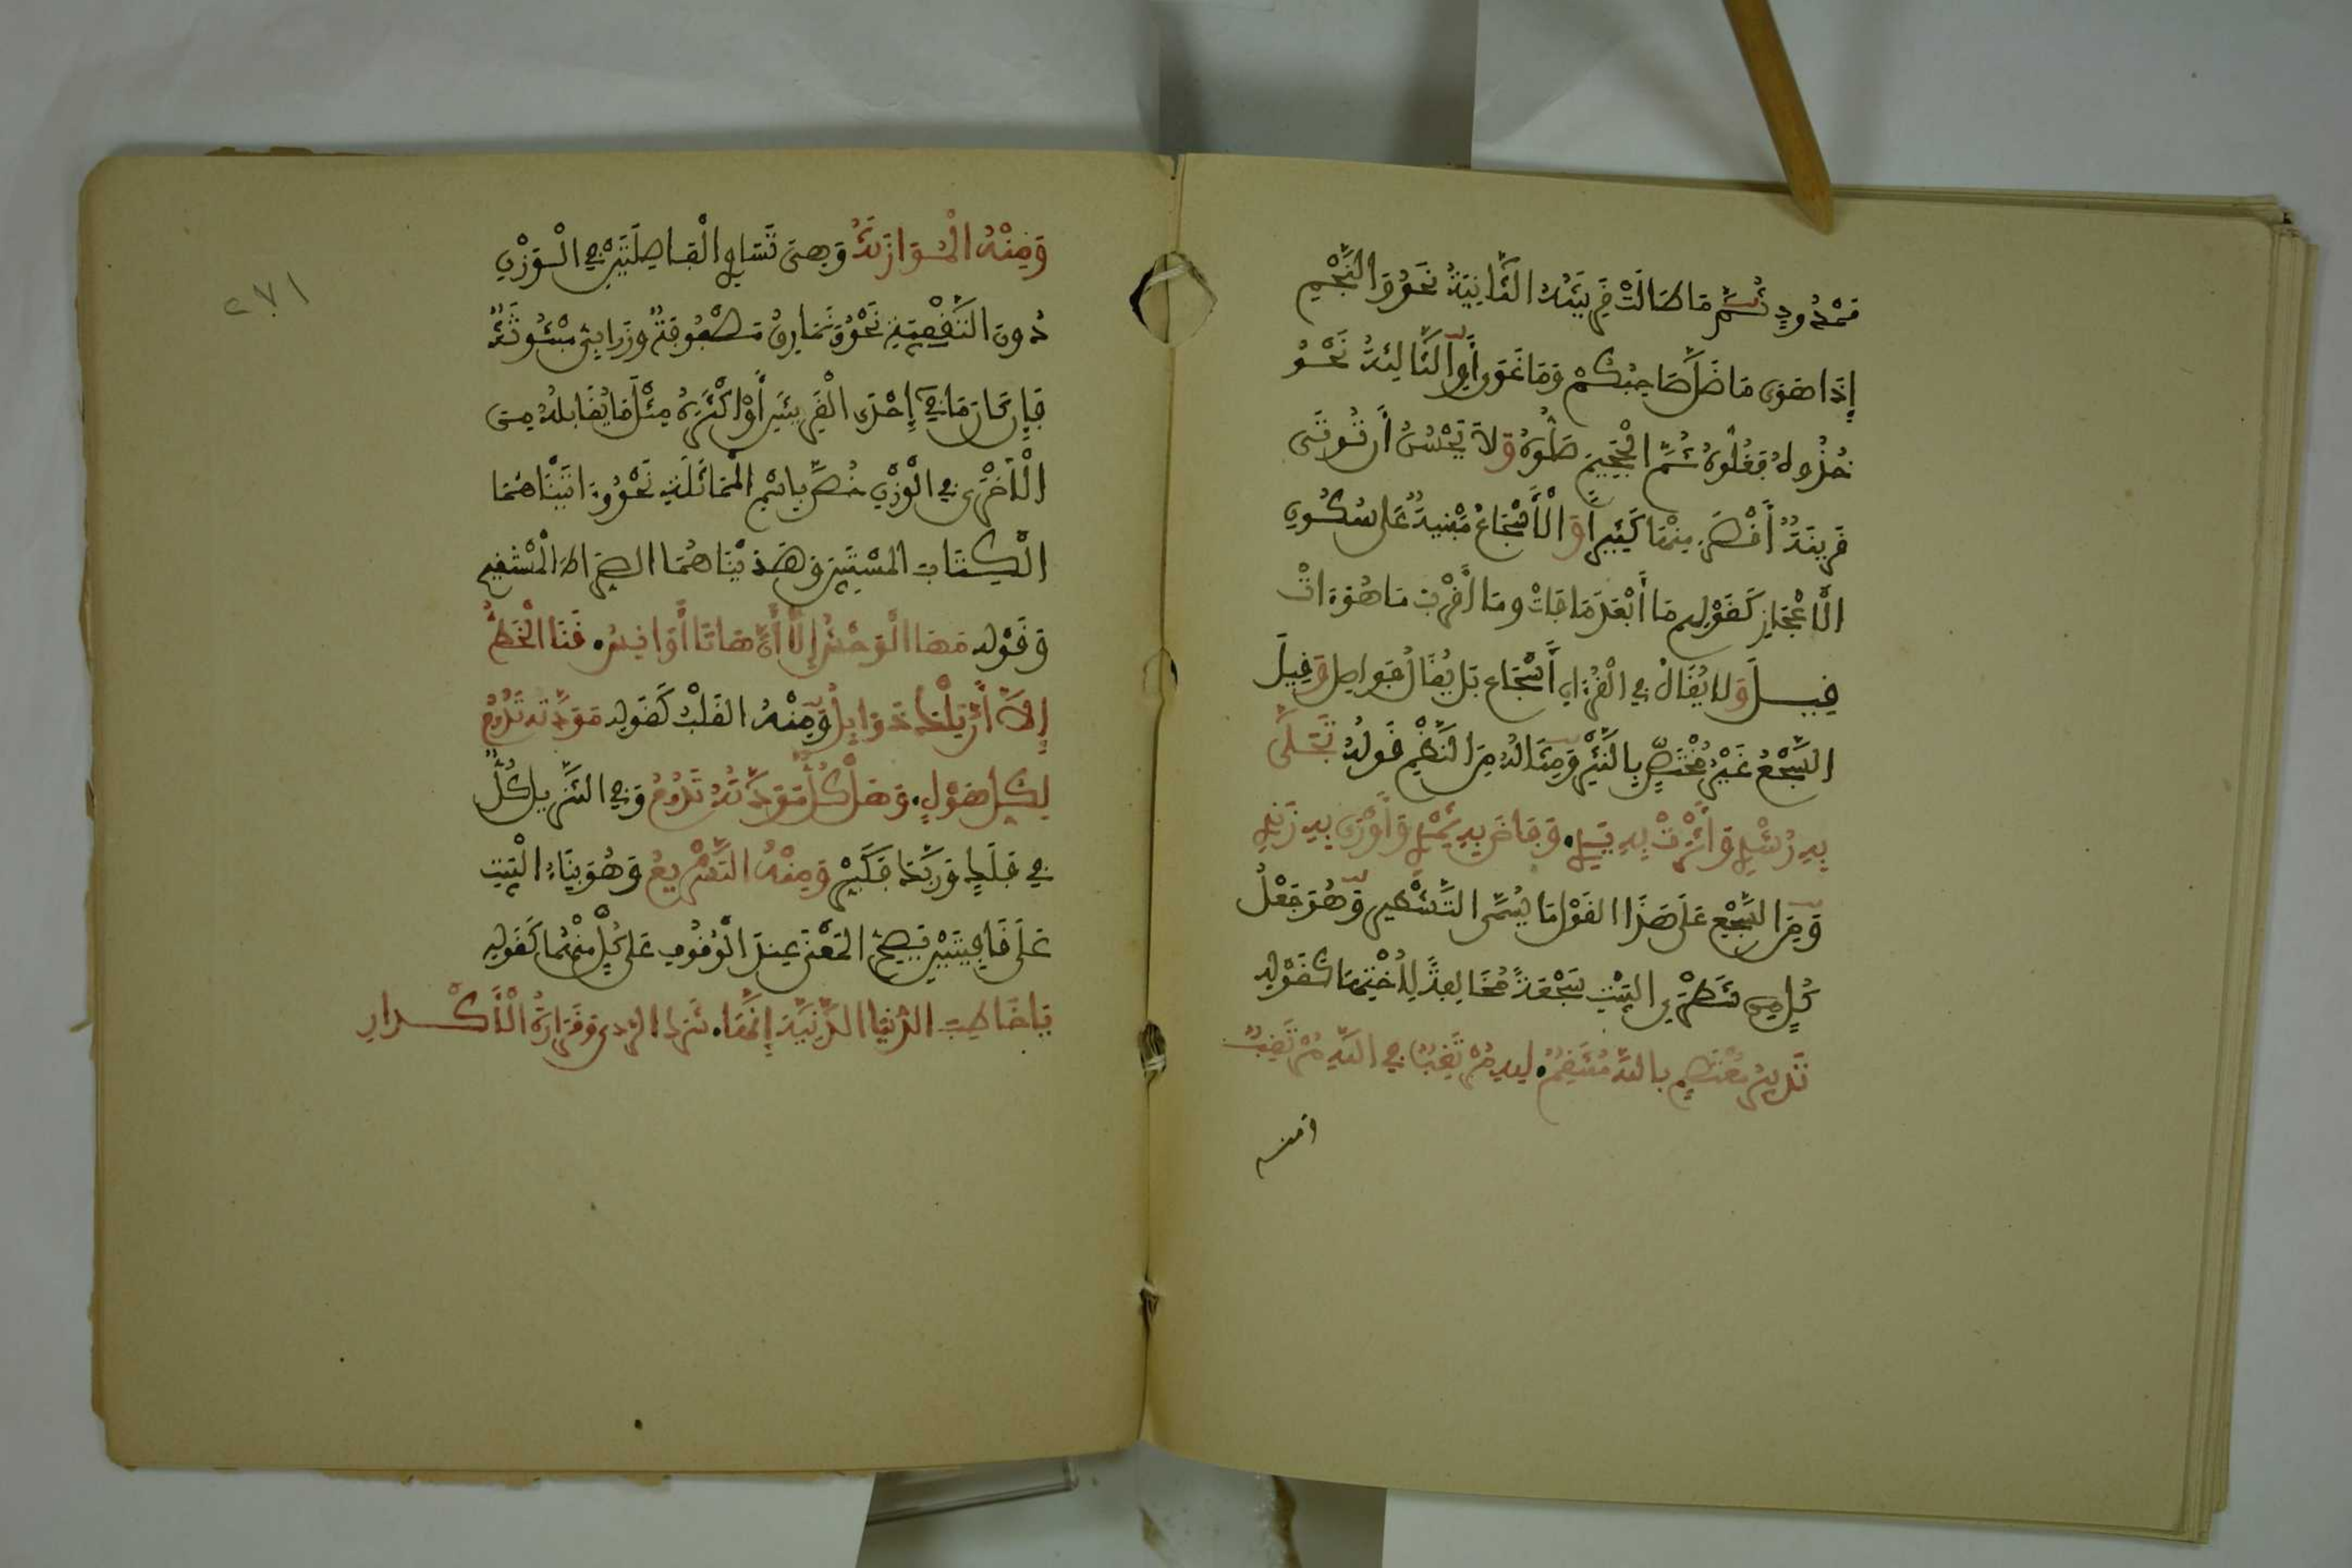 مَمْدُودٍ ثُمَّ مَا طَالَتْ قَرِينَتُهُ الثَّانِيَةُ نَحْوُ وَالنَّجْمِ
إِذَا هَوَى مَا ضَلَّ صَاحِبُكُمْ وَمَا غَوَى أَوِ الثَّالِثَةُ نَحْوُ
خُذُوهُ فَغُلُّوهُ ثُمَّ الْجَحِيمَ صَلُّوهُ وَلَا يَحْسُنُ أَن تُوتَى
قَرِينَةٌ أَقْصَرَ مِنْهَا كَثِيرًا وَالْأَسْجَاعُ مَبْنِيَةٌ عَلَى سُكُونِ
الْأَعْجَازِ كَقَوْلِهِم مَا أَبْعَدَ مَا فَاتْ وَمَا أَقْرَبَ مَا هُوَ ءَاتْ
قِيلَ وَلَا يُقَالُ فِي الْقُرْءَانِ أَسْجَاع بَلْ يُقَالُ فَوَاصِل وَقِيلَ
السَّجْعُ غَيْرُ مُخْتَصٍّ بِالنَّثْرِ وَمِثَالُهُ مِنَ النَّظْمِ قَولُهُ تَجَلَّى
بِهِ رُشْدِي وَأَثْرَتْ بِهِ يَدِي. وَفَاضَ بِهِ ثَمْدِي وَأَوْرَى بِهِ زَنْدِي
وَمِنَ السَّجْعِ عَلَى هَذَا القَوْلِ مَا يُسَمَّى التَّشْطِيرَ وَهُوَ جَعْلُ
كُلٍّ مِن شَطْرَيِ البَيْتِ سَجْعَةً مُخَالِفَةً لِأُخْتِهَا كَقَوْلِهِ
تَدْبِيرُ مُعْتَصِمٍ بِاللَّهِ مُنْتَقِمٍ. لِلَّهِ مُرْتَغِبٍ فِي اللَّهِ مُرْتَقِبِ
٢٧١
وَمِنْهُ الْمُوَازَنَةُ وَهِيَ تَسَاوِي الْفَاصِلَتَيْنِ فِي الْوَزْنِ
دُونَ التَّقْفِيَةِ نَحْوُ وَنَمَارِقُ مَصْفُوفَةٌ وَزَرَابِيُّ مَبْثُوثَةٌ
فَإِن كَانَ مَا فِي إِحْدَى الْقَرِينَتَيْنِ أَوْ أَكْثَرُهُ مِثْلَ مَا يُقَابِلُهُ مِنَ
الْأُخْرَى فِي الْوَزْنِ خُصَّ بِاسْمِ الْمُمَاثَلَةِ نَحْوُ وَءَاتَيْنَاهُمَا
الْكِتَابَ الْمُسْتَبِينَ وَهَدَيْنَاهُمَا الصِّرَاطَ الْمُسْتَقِيمَ
وَقَوْلِهِ مَهَا الْوَحْشِ إِلَّا أَنَّ هَاتَا أَوَانِسُ. قَنَا الْخَطِّ
إِلَّا أَنَّ تِلْكَ ذَوَابِلُ وَمِنْهُ القَلْبُ كَقَولِهِ مَوَدَّتُهُ تَدُومُ
لِكُلِّ هَوْلٍ. وَهَلْ كُلٌّ مَوَدَّتُهُ تَدُومُ وَفِي التَّنْزِيلِ كُلٌّ
فِي فَلَكٍ وَرَبَّكَ فَكَبِّرْ وَمِنْهُ التَّشْرِيعُ وَهُوَ بِنَاءُ الْبَيْتِ
عَلَى قَافِيَتَيْنِ يَصِحُّ الْمَعْنَى عِنْدَ الْوُقُوفِ عَلَى كُلٍّ مِنْهُمَا كَقَولِهِ
يَا خَاطِبَ الدُّنْيَا الدَّنِيَّةَ إِنَّهَا. شَرَكُ الرَّدَى وَقَرَارَةُ الْأَكْدَارِ